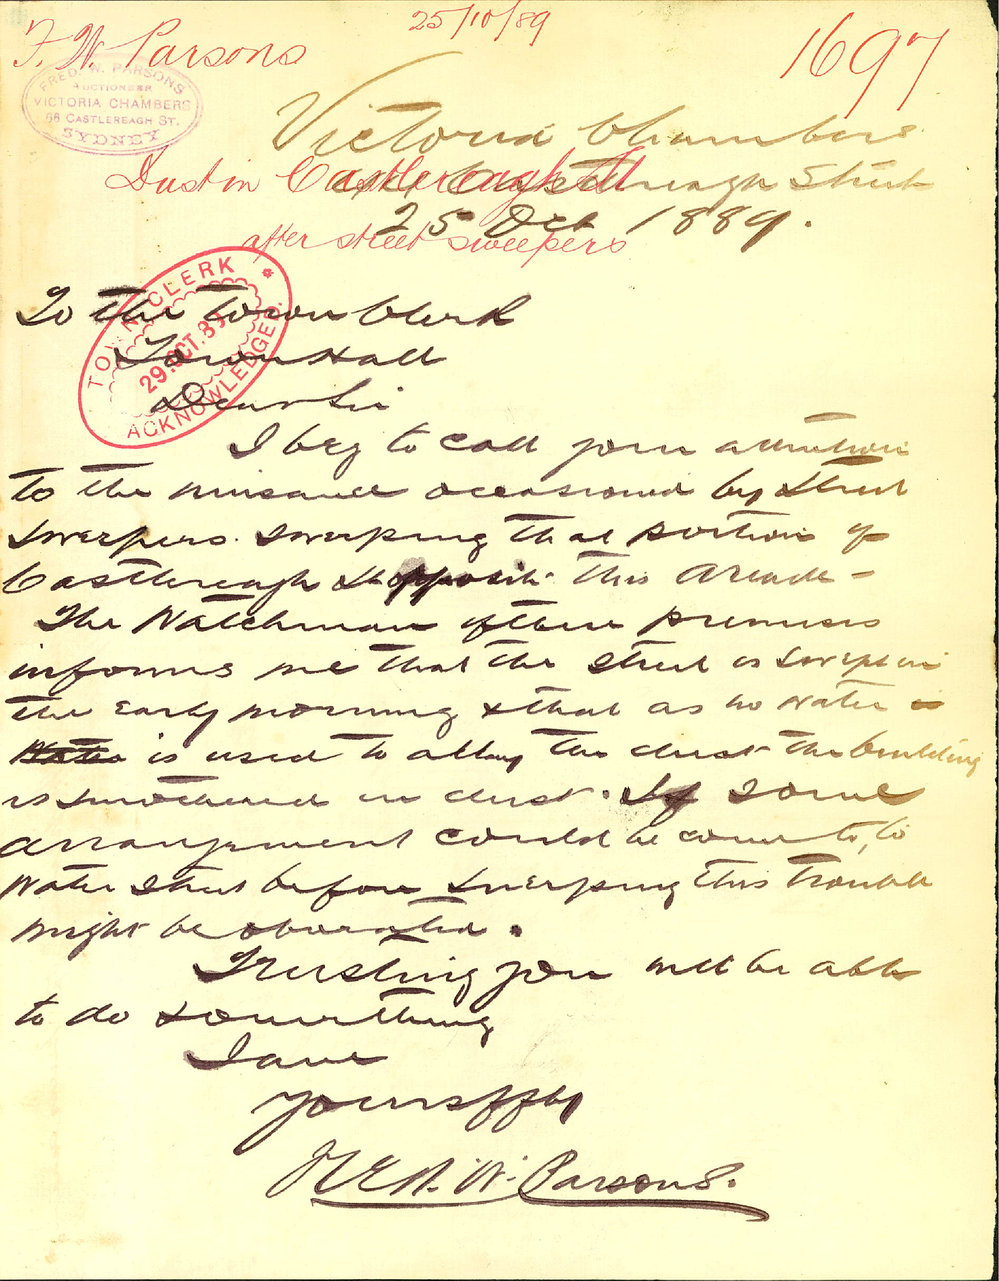 25/10/89
F. W. Parsons
1697
FRED. W. PARSONS
AUCTIONEER
VICTORIA CHAMBERS
66 CASTLEREAGH ST.
SYDNEY
Victoria Chambers
Castlereagh Street
Dust in Castlereagh St
25 Oct 1889.
after street sweepers
TOWN CLERK
29 OCT. 89
ACKNOWLEDGED.
To the Town Clerk
Town Hall
Dear Sir
I beg to call your attention
to the nuisance occasioned by street
sweepers. sweeping that portion of
Castlereagh St opposite this Arcade -
The Watchman of these premises
informs me that the street is swept in
the early morning & that as no water
is used to allay the dust the building
is smothered in dust. If some
arrangement could be come to, to
water street before sweeping this trouble
might be obviated.
Trusting you will be able
to do something
I am
Yours ffly
FRED. W. Parsons.